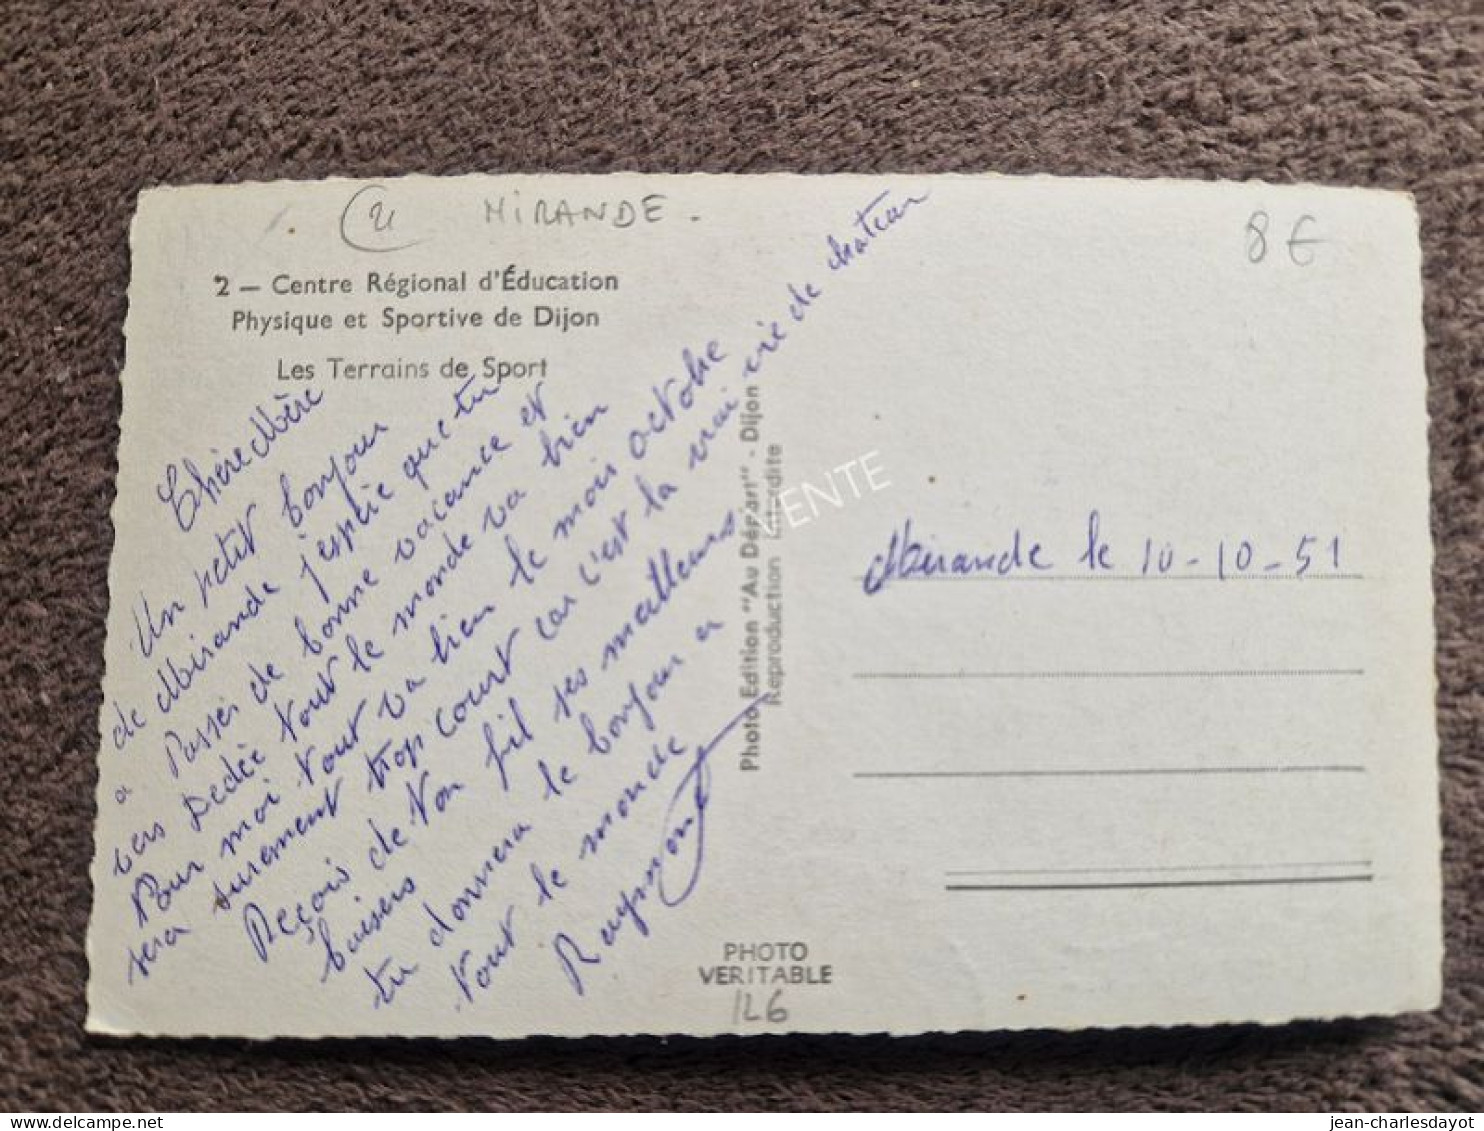 21 MIRANDE.
8 €
2 — Centre Régional d'Éducation
Physique et Sportive de Dijon
Les Terrains de Sport
Chère Mère
Un petit bonjour
de Mirande j'espère que tu
a Passer de bonne vacance et
vers Dédée tout le monde va bien
Pour moi tout va bien le mois octobre
sera surement trop court car c'est la vrai vie de chateau
Reçois de ton fil ses meilleurs
baisers
tu donnera le bonjour a
tout le monde
Raymond
Photo Edition "Au Départ" - Dijon
Reproduction interdite
VENTE
Mirande le 10-10-51
PHOTO
VERITABLE
126
jean-charlesdayot